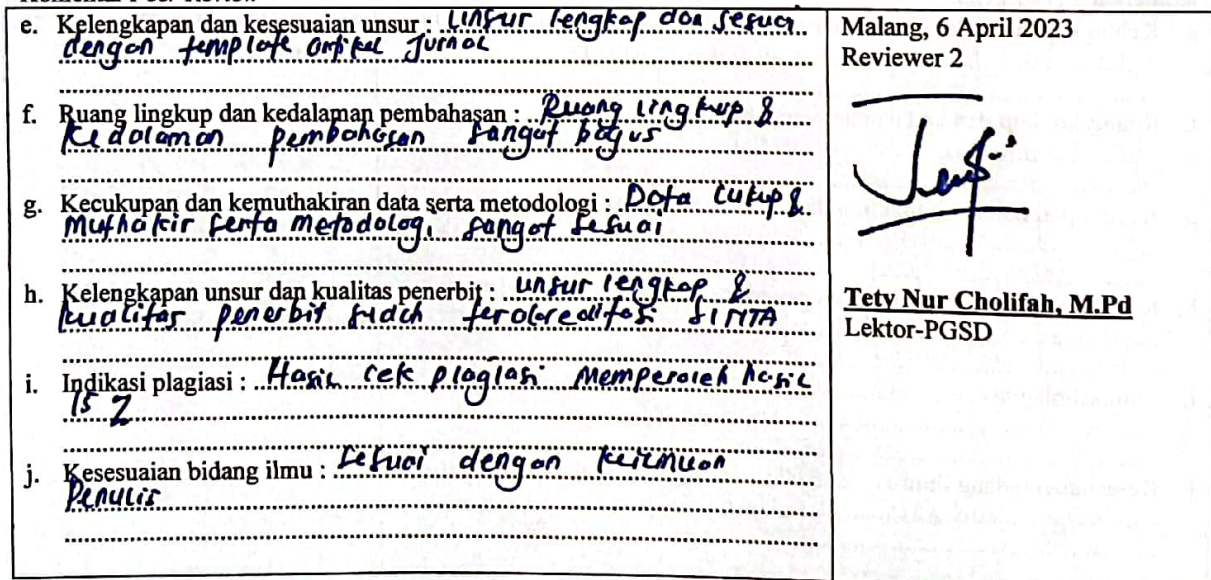 e. Kelengkapan dan kesesuaian unsur : Unsur lengkap dan sesuai
dengan template artikel Jurnal
f. Ruang lingkup dan kedalaman pembahasan : Ruang lingkup &
Kedalaman pembahasan sangat bagus
g. Kecukupan dan kemuthakiran data serta metodologi : Data cukup &
Muthakir serta metodologi sangat sesuai
h. Kelengkapan unsur dan kualitas penerbit : unsur lengkap &
kualitas penerbit sudah terakreditasi SINTA
i. Indikasi plagiasi : Hasil cek plagiasi memperoleh hasil
15 %
j. Kesesuaian bidang ilmu : Sesuai dengan keilmuan
Penulis
Malang, 6 April 2023
Reviewer 2
Tety Nur Cholifah, M.Pd
Lektor-PGSD